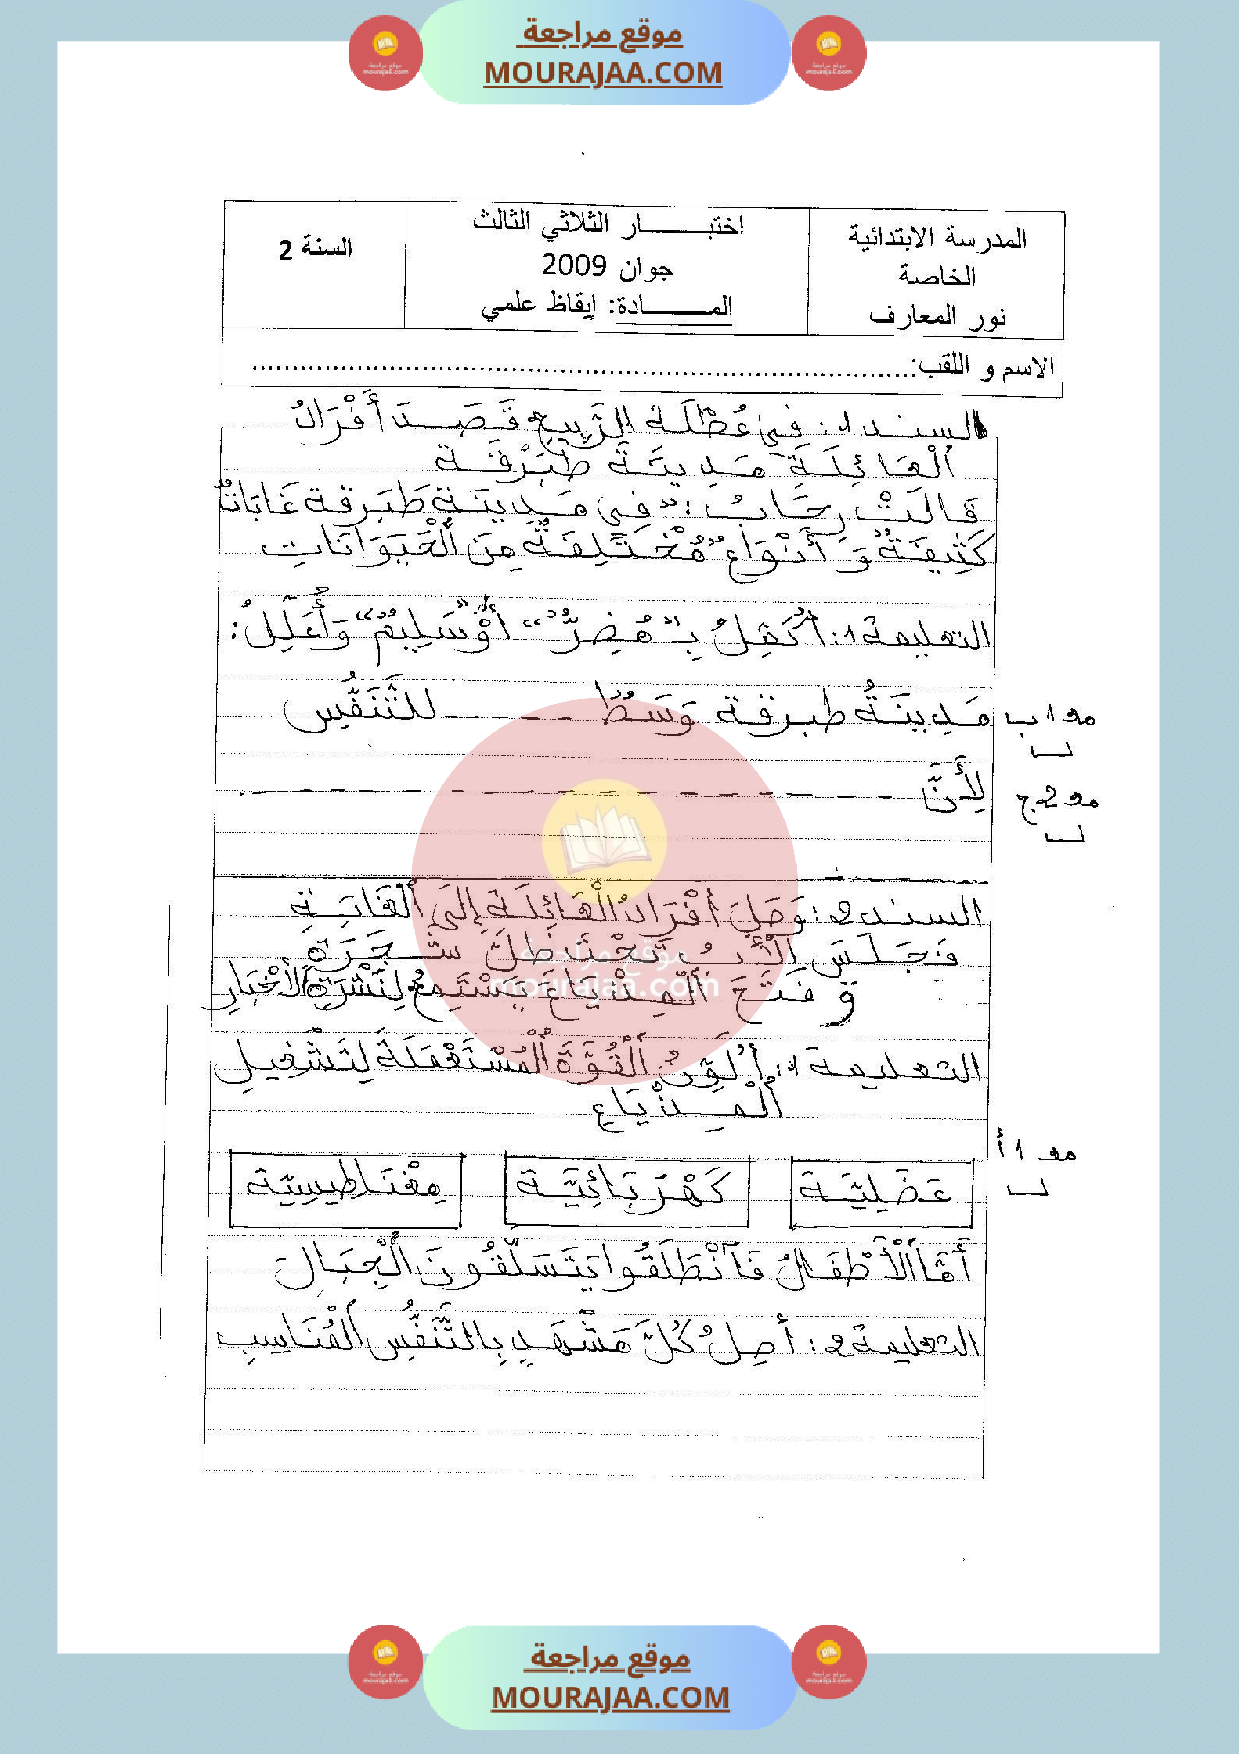 موقع مراجعة
MOURAJAA.COM
المدرسة الابتدائية
الخاصة
نور المعارف
اختبـــــــار الثلاثي الثالث
جوان 2009
المـــــــادة: إيقاظ علمي
السنة 2
الاسم و اللقب:..........................................................
السند 1: فِي عُطْلَةِ الرَّبِيعِ قَصَدَ أَفْرَادُ
الْعَائِلَةِ مَدِينَةَ طَبَرْقَةَ
قَالَتْ رِحَابُ: "فِي مَدِينَةِ طَبَرقة غَابَاتٌ
كَثِيفَةٌ وَ أَنْوَاعٌ مُخْتَلِفَةٌ مِنَ الْحَيَوَانَاتِ
التعليمة 1: أُكْمِلُ بِـ "مُضِرٌّ" أَوْ "سَلِيمٌ" وَأُعَلِّلُ:
مَدِينَةُ طبرقة وَسَطٌ ـ ـ ـ ـ للتَّنَفُّسِ
مع 1 ب
لِأَنَّ ـ ـ ـ ـ ـ ـ ـ ـ ـ ـ ـ ـ
مع 2 ج
السند 2: وَصَلَ أَفْرَادُ الْعَائِلَةِ إِلَى الْغَابَةِ
فَجَلَسَ الْأَبُ تَحْتَ ظِلِّ شَجَرَةٍ
وَ فَتَحَ الْمِذْيَاعَ يَسْتَمِعُ لِنَشْرَةِ الْأَخْبَارِ
التعليمة 1: أُلَوِّنُ الْقُوَّةَ الْمُسْتَعْمَلَةَ لِتَشْغِيلِ
الْمِذْيَاعِ
مع 1 أ
عَضَلِيَّة
كَهْرَبَائِيَّة
مِغْنَاطِيسِيَّة
أَمَّا الْأَطْفَالُ فَانْطَلَقُوا يَتَسَلَّقُونَ الْجِبَالَ
التعليمة 2: أَصِلُ كُلَّ مَشْهَدٍ بِالتَّنَفُّسِ الْمُنَاسِبِ
موقع مراجعة
MOURAJAA.COM